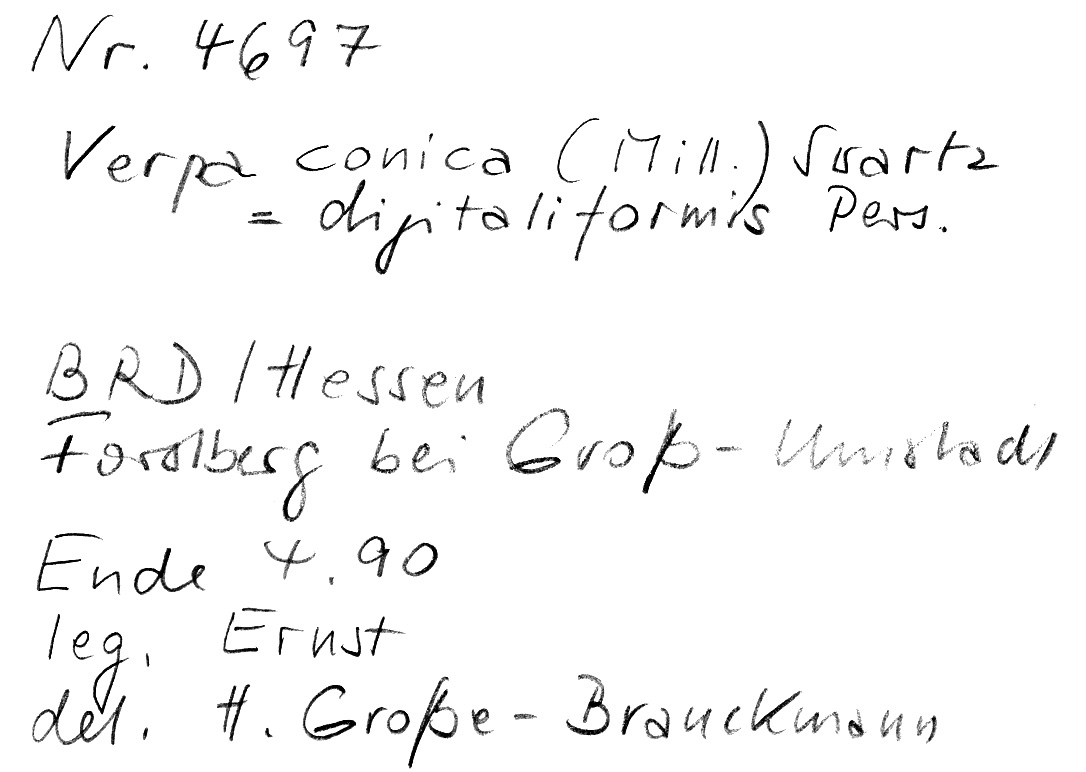 Nr. 4697
Verpa conica (Mill.) Swartz
= digitaliformis Pers.
BRD / Hessen
Forstberg bei Groß-Umstadt
Ende 4.90
leg. Ernst
det. H. Große-Brauckmann